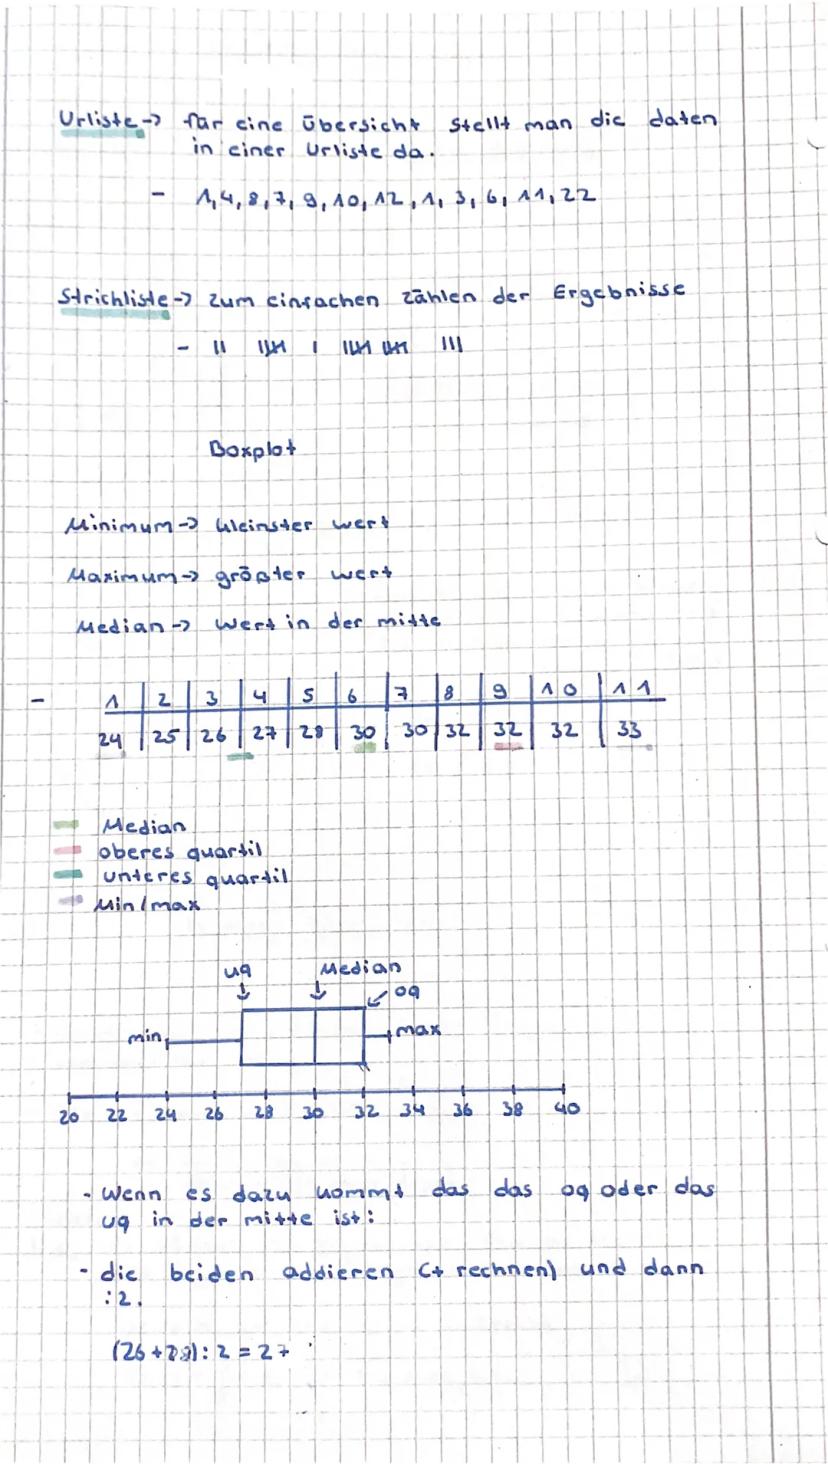 Urliste -> für eine übersicht stellt man die daten
in einer Urliste da.
- 1,4,8,7,9,10,12,1,3,6,11,22
Strichliste -> zum einfachen zählen der Ergebnisse
- || |||| | |||| |||| |||
Boxplot
Minimum -> kleinster wert
Maximum -> größter wert
Median -> Wert in der mitte
- 1 2 3 4 5 6 7 8 9 10 11
24 25 26 27 28 30 30 32 32 32 33
Median
oberes quartil
unteres quartil
Min/max
uq Median
oq
min max
20 22 24 26 28 30 32 34 36 38 40
- Wenn es dazu kommt das das oq oder das
uq in der mitte ist:
- die beiden addieren (+ rechnen) und dann
:2.
(26+28):2=27